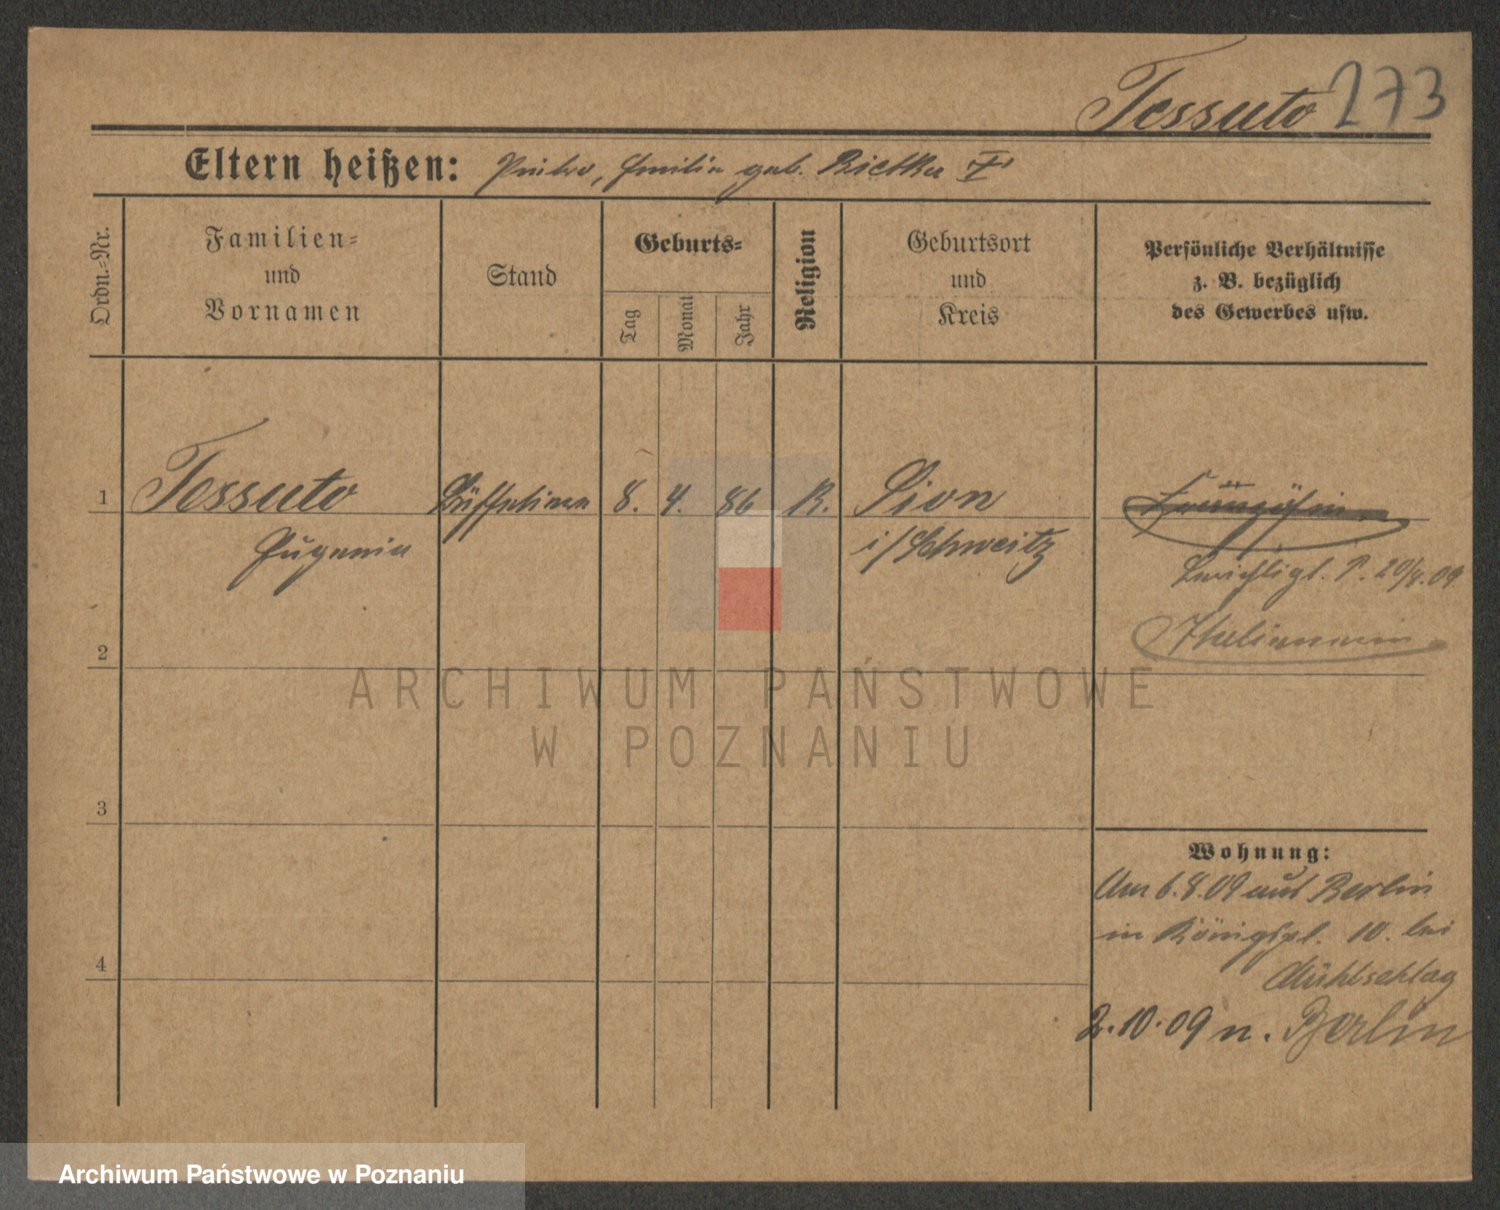 Tessuto 273
Eltern heißen: Pietro, Emilia geb. Riethka
Ordn.-Nr.
Familien-
und
Vornamen
Stand
Geburts-
Tag
Monat
Jahr
Religion
Geburtsort
und
Kreis
Persönliche Verhältnisse
z. B. bezüglich
des Gewerbes usw.
1 Tessuto 8. 4. 86 R. Sion Französin
Eugenia i/Schweitz
berichtigt. P. 20/8.09
Italienerin
2
3
Wohnung:
Am 6.8.09 aus Berlin
in Königspl. 10. bei
Mühlschlag
4
2.10.09 n. Berlin
ARCHIWUM PAŃSTWOWE
W POZNANIU
Archiwum Państwowe w Poznaniu